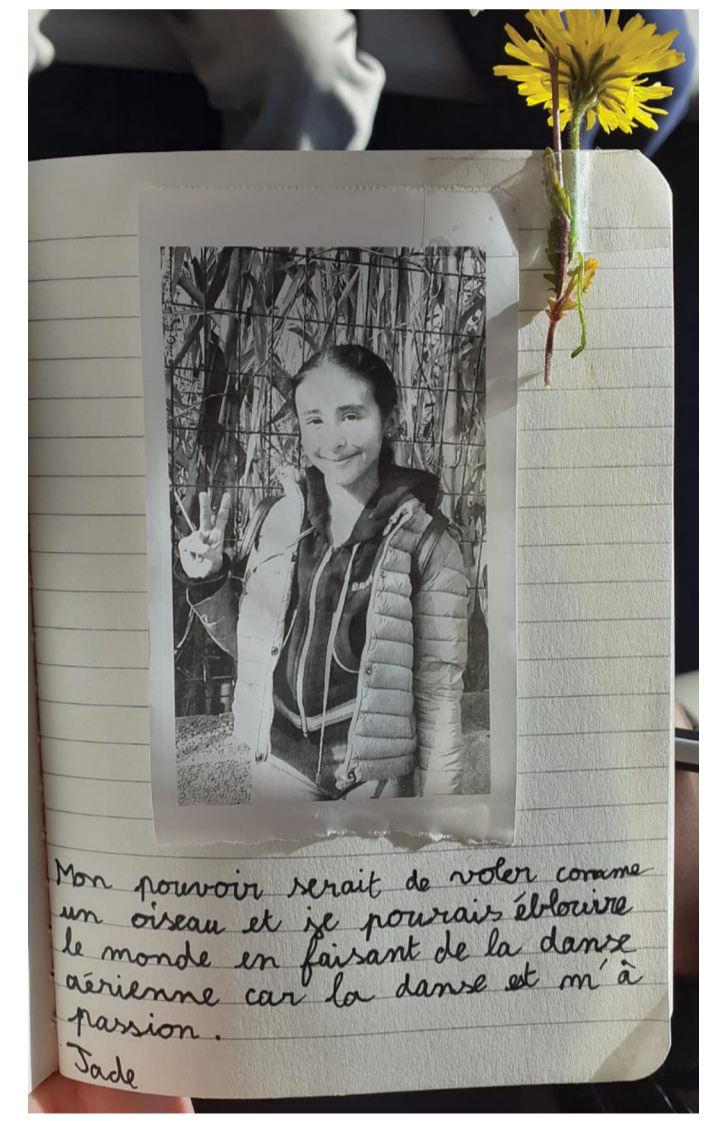 Mon pouvoir serait de voler comme
un oiseau et je pourais éblouire
le monde en faisant de la danse
aérienne car la danse est m'à
passion.
Jade